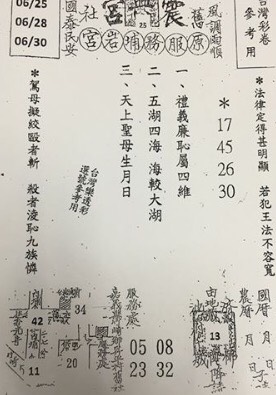 台灣彩卷
參考用
風調雨順
舊
震宮
25
社
國泰民安
06/25
06/28
06/30
原服務埔岩宮
＊法律定得甚明顯　若犯王法不容寬
＊
17
45
26
30
一、禮義廉恥屬四維
二、五湖四海 海較大湖
三、天上聖母生月日
台灣樂透彩
選號參考用
＊駕母擬絞毆者斬　殺者淩恥九族憐
國曆 月 日
農曆 月 日
由地
13
服務處
05 08
23 32
34
20
42
11